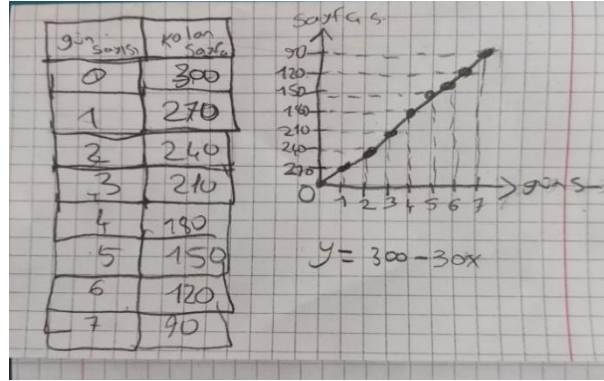 gün sayısı kalan sayfa
0 300
1 270
2 240
3 210
4 180
5 150
6 120
7 90
sayfa s.
90
120
150
180
210
240
270
0 1 2 3 4 5 6 7 gün s.
y = 300 - 30x